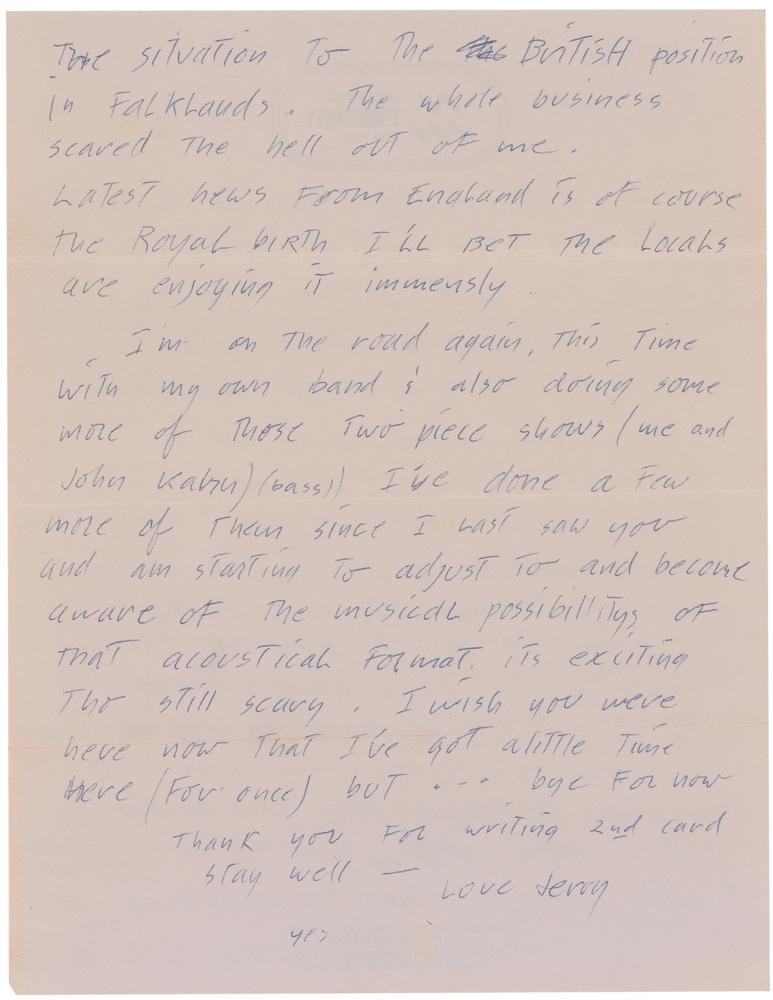 The situation To The British position
in Falklands. The whole business
scared The hell out of me.
Latest news From England is of course
the Royal birth I'll BET The Locals
are enjoying it immensly.
I'm on The road again, This Time
with my own band & also doing some
more of Those Two piece shows (me and
John Kahn) (bass)) I've done a Few
more of Them since I Last saw you
and am starting To adjust To and become
aware of The musical possibilitys of
that acoustical Format. its exciting
Tho still scary. I wish you were
here now That I've got alittle Time
Here (For once) but ... bye For now
Thank you For writing 2nd card
stay well — Love Jerry
yes